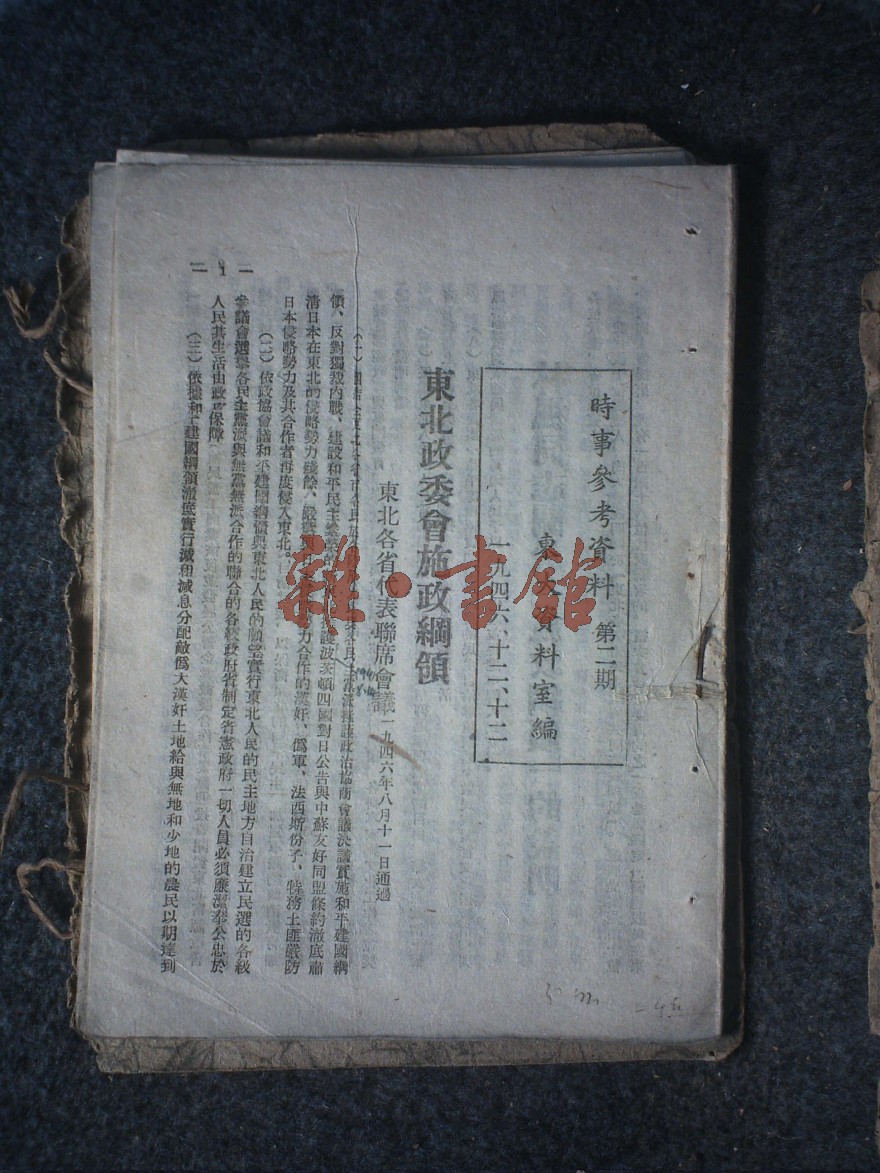 時事參考資料 第二期
東大資料室編
一九四六、十二、十二
東北政委會施政綱領
東北各省代表聯席會議 一九四六年八月十一日通過
(一)
政治協商會議決議實施和平建國綱
領、反對獨裁內戰、建設和平民主
護波茨頓四國對日公告與中蘇友好同盟條約澈底肅
清日本在東北的侵略勢力殘餘、嚴懲
力合作的漢奸、僞軍、法西斯份子、特務土匪嚴防
日本侵略勢力及其合作者再度侵入東北。
(二)依政協會議和平建國綱領與東北人民的願望實行東北人民的民主地方自治建立民選的各級
參議會選舉各民主黨派與無黨無派合作的聯合的各級政府省制定省憲政府一切人員必須廉潔奉公忠於
人民其生活由政府保障
(三)依據和平建國綱領澈底實行減租減息分配敵僞大漢奸土地給與無地和少地的農民以期達到
— 1 —
雜·書館